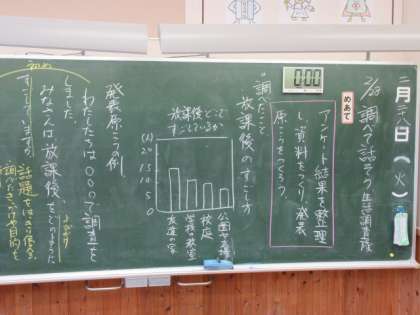 二月二十八日(火)
2/28 調べて話そう 生活調査隊
めあて
アンケート結果を整理
し、資料をつくり、発表
原こうをつくろう。
00:0
◦調べたこと
放課後のすごし方
放課後どこで
すごしているか
(人)
20
15
10
5
0
公園や広場
校庭
学校の教室
友達の家
発表原こう例
わたしたちは〇〇〇で調査を
しました。
みなさんは放課後、をどのように
すごしていますか。
話題をはっきり伝える
調べたきっかけや目的を